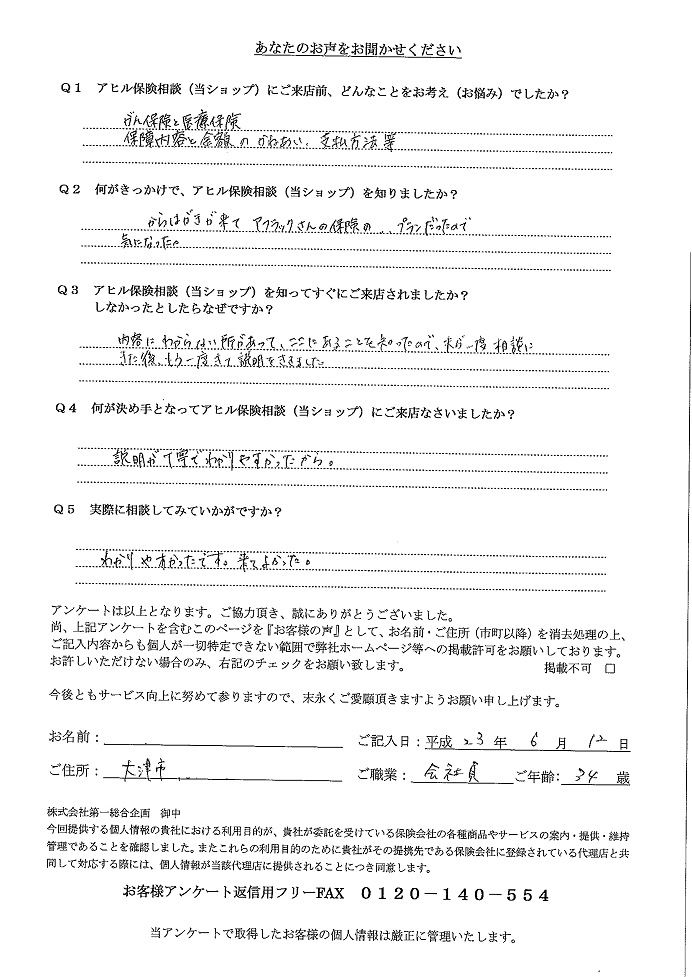 あなたのお声をお聞かせください
Q1 アヒル保険相談（当ショップ）にご来店前、どんなことをお考え（お悩み）でしたか？
がん保険と医療保険
保障内容と金額のかねあい、支払方法等
Q2 何がきっかけで、アヒル保険相談（当ショップ）を知りましたか？
からはがきが来て アフラックさんの保険の、、プランだったので
気になった。
Q3 アヒル保険相談（当ショップ）を知ってすぐにご来店されましたか？
しなかったとしたらなぜですか？
内容にわからない所があって、ここにあることを知ったので、一度相談に
きた後、もう一度きて説明をききました
Q4 何が決め手となってアヒル保険相談（当ショップ）にご来店なさいましたか？
説明が丁寧でわかりやすかったから。
Q5 実際に相談してみていかがですか？
わかりやすかったです。来てよかった。
アンケートは以上となります。ご協力頂き、誠にありがとうございました。
尚、上記アンケートを含むこのページを『お客様の声』として、お名前・ご住所（市町以降）を消去処理の上、
ご記入内容からも個人が一切特定できない範囲で弊社ホームページ等への掲載許可をお願いしております。
お許しいただけない場合のみ、右記のチェックをお願い致します。 掲載不可 □
今後ともサービス向上に努めて参りますので、末永くご愛顧頂きますようお願い申し上げます。
お名前： ご記入日：平成 23 年 6 月 12 日
ご住所： 大津市 ご職業： 会社員 ご年齢： 34 歳
株式会社第一総合企画 御中
今回提供する個人情報の貴社における利用目的が、貴社が委託を受けている保険会社の各種商品やサービスの案内・提供・維持
管理であることを確認しました。またこれらの利用目的のために貴社がその提携先である保険会社に登録されている代理店と共
同して対応する際には、個人情報が当該代理店に提供されることにつき同意します。
お客様アンケート返信用フリーFAX 0120－140－554
当アンケートで取得したお客様の個人情報は厳正に管理いたします。